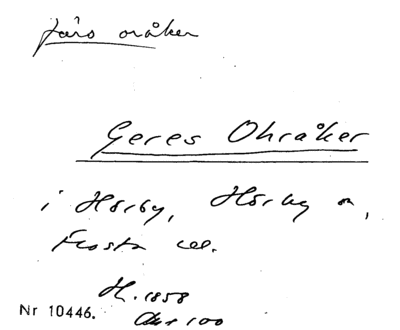 järs oråker
Geres Ohråker
i Hörby, Hörby sn,
Frosta
H. 1858
Nr 10446.